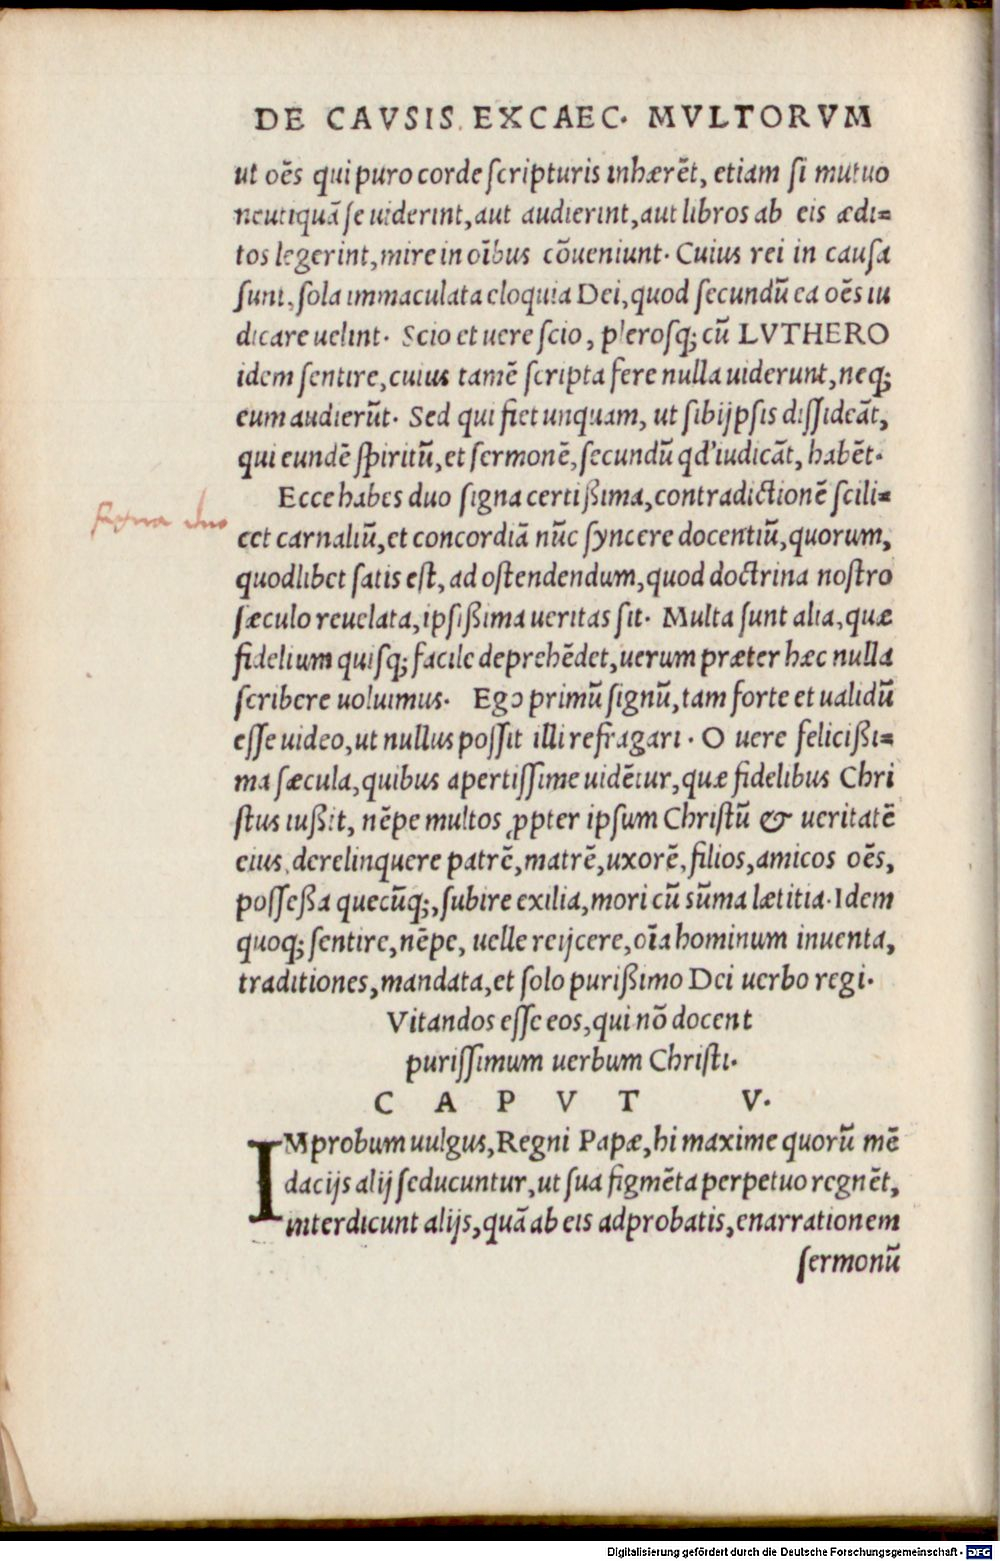 DE CAVSIS EXCAEC. MVLTORVM
ut oēs qui puro corde ſcripturis inhærēt, etiam ſi mutuo
neutiquā ſe uiderint, aut audierint, aut libros ab eis ædi⸗
tos legerint, mire in oībus cōueniunt. Cuius rei in cauſa
ſunt, ſola immaculata eloquia Dei, quod ſecundū ea oēs iu
dicare uelint. Scio et uere ſcio, pleroſq; cū LVTHERO
idem ſentire, cuius tamē ſcripta fere nulla uiderunt, neq;
eum audierūt. Sed qui fiet unquam, ut ſibijpſis diſſideāt,
qui eundē ſpiritū, et ſermonē, ſecundū qd' iudicāt, habēt.
Ecce habes duo ſigna certißima, contradictionē ſcili⸗
Signa duo
cet carnaliū, et concordiā nūc ſyncere docentiū, quorum,
quodlibet ſatis eſt, ad oſtendendum, quod doctrina noſtro
ſæculo reuelata, ipſißima ueritas ſit. Multa ſunt alia, quæ
fidelium quiſq; facile deprehēdet, uerum præter hæc nulla
ſcribere uoluimus. Ego primū ſignū, tam forte et ualidū
eſſe uideo, ut nullus poſſit illi refragari. O uere felicißi⸗
ma ſæcula, quibus apertiſſime uidētur, quæ fidelibus Chri
ſtus iußit, nēpe multos ꝓpter ipſum Chriſtū & ueritatē
eius, derelinquere patrē, matrē, uxorē, filios, amicos oēs,
poſſeßa quecūq;, ſubire exilia, mori cū sūma lætitia. Idem
quoq; ſentire, nēpe, uelle reijcere, oīa hominum inuenta,
traditiones, mandata, et ſolo purißimo Dei uerbo regi.
Vitandos eſſe eos, qui nō docent
puriſſimum uerbum Chriſti.
CAPVT V.
IMprobum uulgus, Regni Papæ, hi maxime quorū mē
dacijs alij ſeducuntur, ut ſua figmēta perpetuo regnēt,
interdicunt alijs, quā ab eis adprobatis, enarrationem
ſermonū
Digitalisierung gefördert durch die Deutsche Forschungsgemeinschaft - DFG